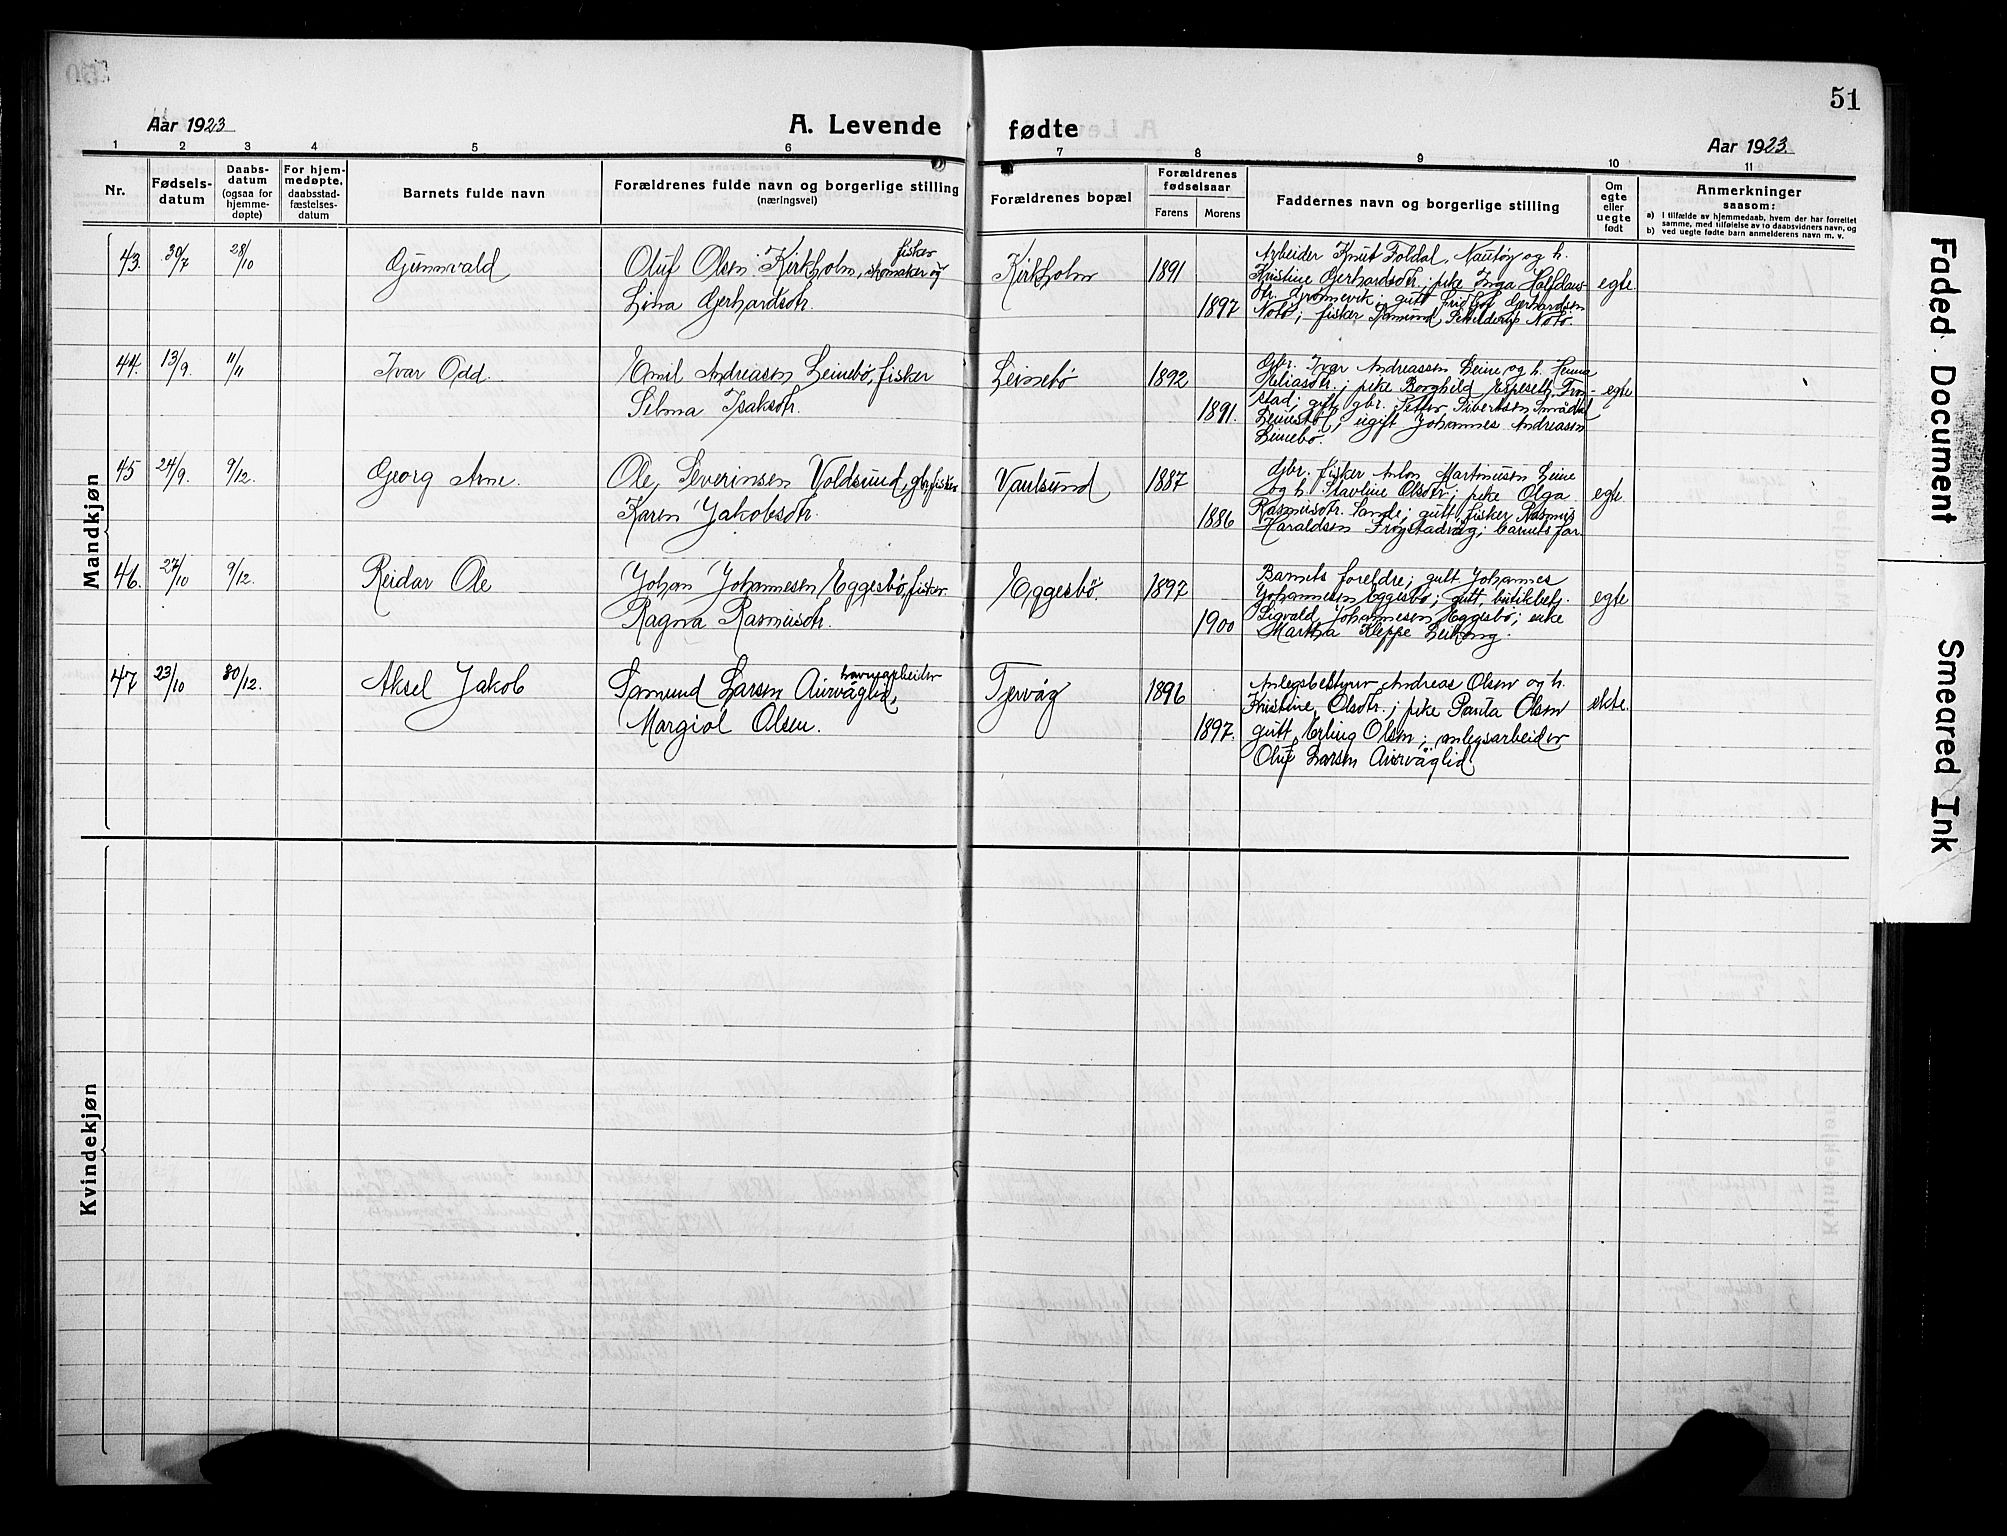 51
Aar 1923
A. Levende fødte
Aar 1923.
1 2 3 4 5 6 7 8 9 10 11
Nr.
Fødsels-
datum
Daabs-
datum
(ogsaa for
hjemme-
døpte)
For hjem-
medøpte,
daabsstad-
fæstelses-
datum
Barnets fulde navn
Forældrenes fulde navn og borgerlige stilling
(næringsvei)
Forældrenes bopæl
Forældrenes
fødselsaar
Farens Morens
Faddernes navn og borgerlige stilling
Om
egte
eller
uegte
født
Anmerkninger
saasom:
a) i tilfælde av hjemmedaab, hvem der har forrettet
samme, med tilføielse av to daabsvidners navn, og
b) ved uegte fødte barn anmelderens navn m. v.
Mandkjøn
43. 30/7 28/10 Gunnvald
Oluf Olsen Kirkholm, skomaker og
fisker
Lina Gerhardsdtr.
Kirkholm 1891
1897
Arbeider Knut Foldal, Nautøy og h.
Kristine Gerhardsdtr.; pike Inga Halfdans-
dtr. Grønnevik; gutt Fridtjof Gerhardsen
Notø; fisker Notø.
egte
44. 13/9. 11/11 Ivar Odd.
Emil Andreasen Leinebø, fisker
Selma Isaksdtr.
Leinebø 1892
1891.
Gbr. Ivar Andreassen Leine og h.
Eliasdtr.; pike Borghild Espeseth, Frøy-
stad; gift gbr. Petter Sivertsen
ugift Johannes Andreasen
Leinebø.
egte
45 24/9. 9/12. Georg Arne.
Ole Severinsen Voldsund, gbr., fisker
Karen Jakobsdtr.
Vaulsund 1887
1886
Gbr. fisker Anton Martinusen Leine
og h. Olsdtr.; pike Olga
Rasmusdtr. Sande; gutt, fisker Rasmus
Haraldsen Frøystadvåg; barnets far.
egte
46. 27/10 9/12. Reidar Ole
Johan Johannesen Eggesbø, fisker
Ragna Rasmusdtr.
Eggesbø. 1897
1900
Barnets foreldre; gutt Johannes
Johannesen Eggesbø; gutt, butikbetj.
Sigvald Johannesen Eggesbø; enke
Martha Kleppe Leikong.
egte
47 23/10 30/12. Aksel Jakob
Samund Larsen Aurvåglid,
havnearbeider
Margiol Olsen.
Tjervåg 1896
1897.
Anlegsbestyrer Andreas Olsen og h.
Kristine Olsdtr.; pike Olsen
gutt Erling Olsen; anlegsarbeider
Oluf Larsen Aurvåglid
ekte.
Kvindekjøn
Faded Document
Smeared Ink